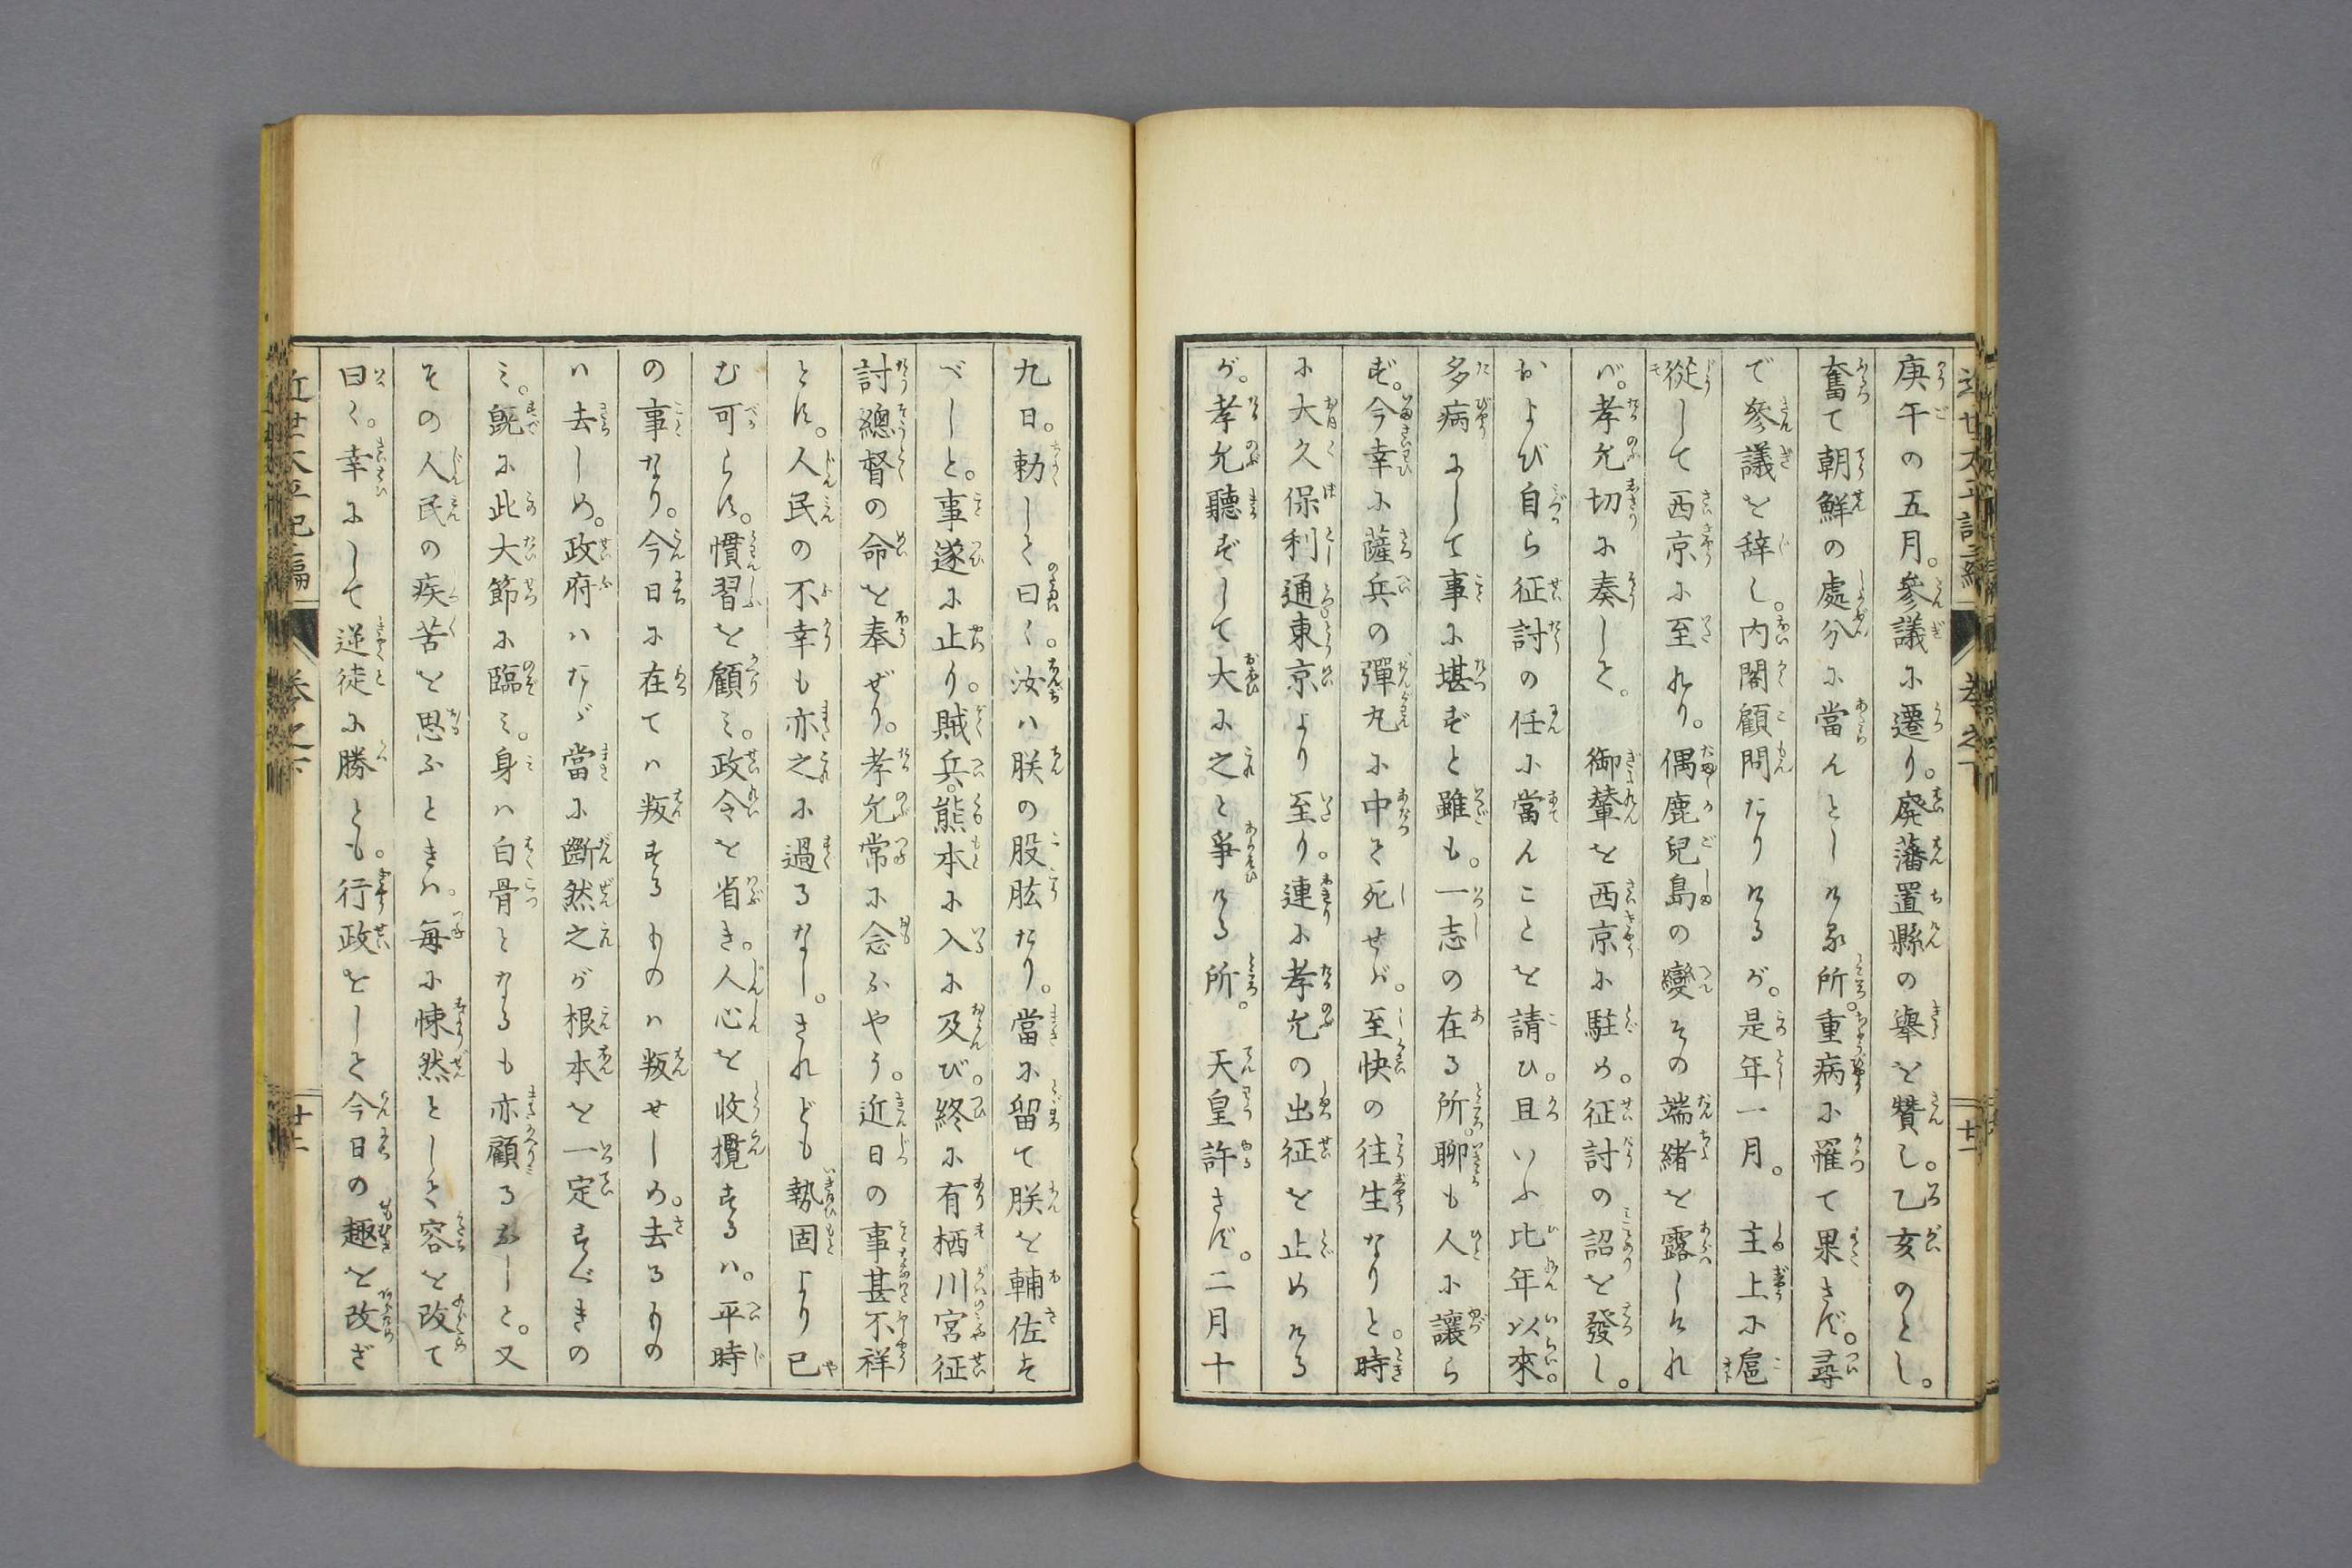 庚午の五月。參議に遷り。廃藩置縣の擧を賛し。乙亥のとし。
奮て朝鮮の處分に當んとしける所。重病に罹て果さず。尋
で參議を辞し。内閣顧問たりけるが。是年一月。主上に扈
從して西京に至れり。偶鹿兒島の變その端緒を露しけれ
バ。孝允切に奏して。御輦を西京に駐め。征討の詔を發し。
および自ら征討の任に當んことを請ひ。且いふ比年以來。
多病にして事に堪ずと雖も。一志の在る所。聊も人に讓ら
ず。今幸に薩兵の彈丸に中て死せバ。至快の往生なりと。時
に大久保利通東京より至り。連に孝允の出征を止めける
が。孝允聽ずして大に之と爭ける所。天皇許さず。二月十
九日。勅して曰く。汝ハ朕の股肱たり。當に留て朕を輔佐す
べしと。事遂に止り。賊兵。熊本に入に及び。終に有栖川宮征
討總督の命を奉ぜり。孝允常に念ふやう。近日の事甚不祥
とす。人民の不幸も亦之に過るなし。されども勢固より已
む可らず。慣習を顧ミ。政令を省き。人心を收攬するハ。平時
の事なり。今日に在てハ叛するものハ叛せしめ。去るもの
ハ去しめ。政府ハたゞ當に斷然之が根本を一定すべきの
ミ。既に此大節に臨ミ。身ハ白骨となるも亦顧るなしと。又
その人民の疾苦を思ふときハ。毎に悚然として容を改て
曰く。幸にして逆徒に勝とも。行政をして今日の趣を改ざ
近世太平記三編
卷之下
廿一
廿二